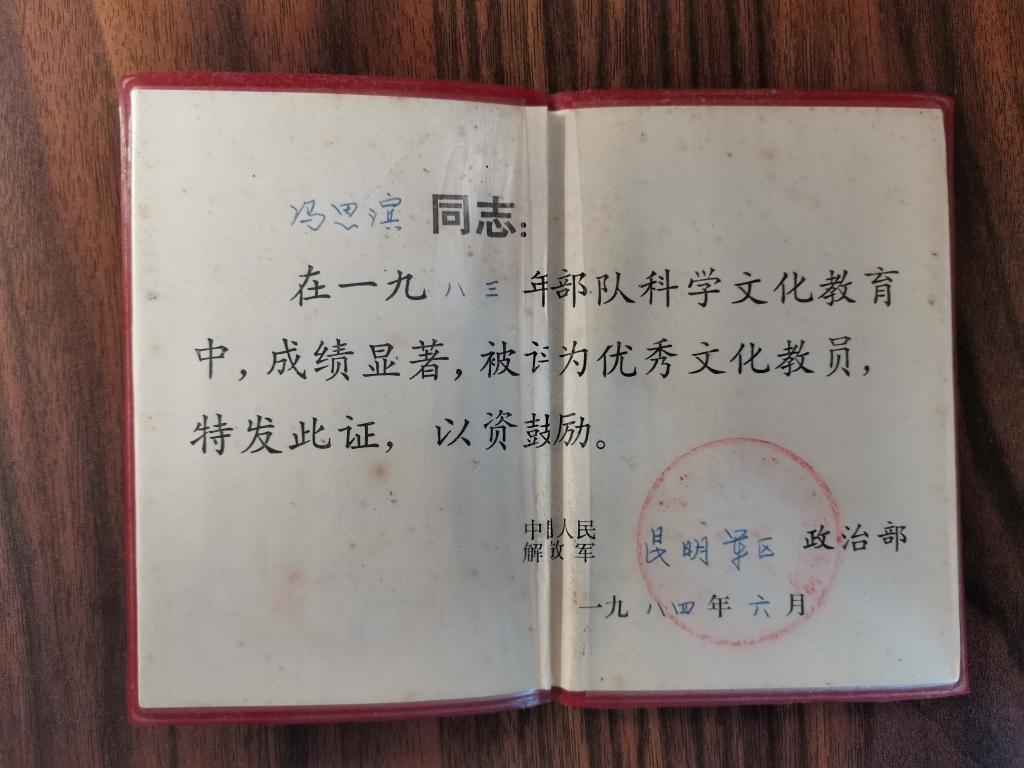 冯思滨 同志:
在一九八三年部队科学文化教育
中,成绩显著,被评为优秀文化教员,
特发此证, 以资鼓励。
中国人民
解放军 昆明军区 政治部
一九八四年六月